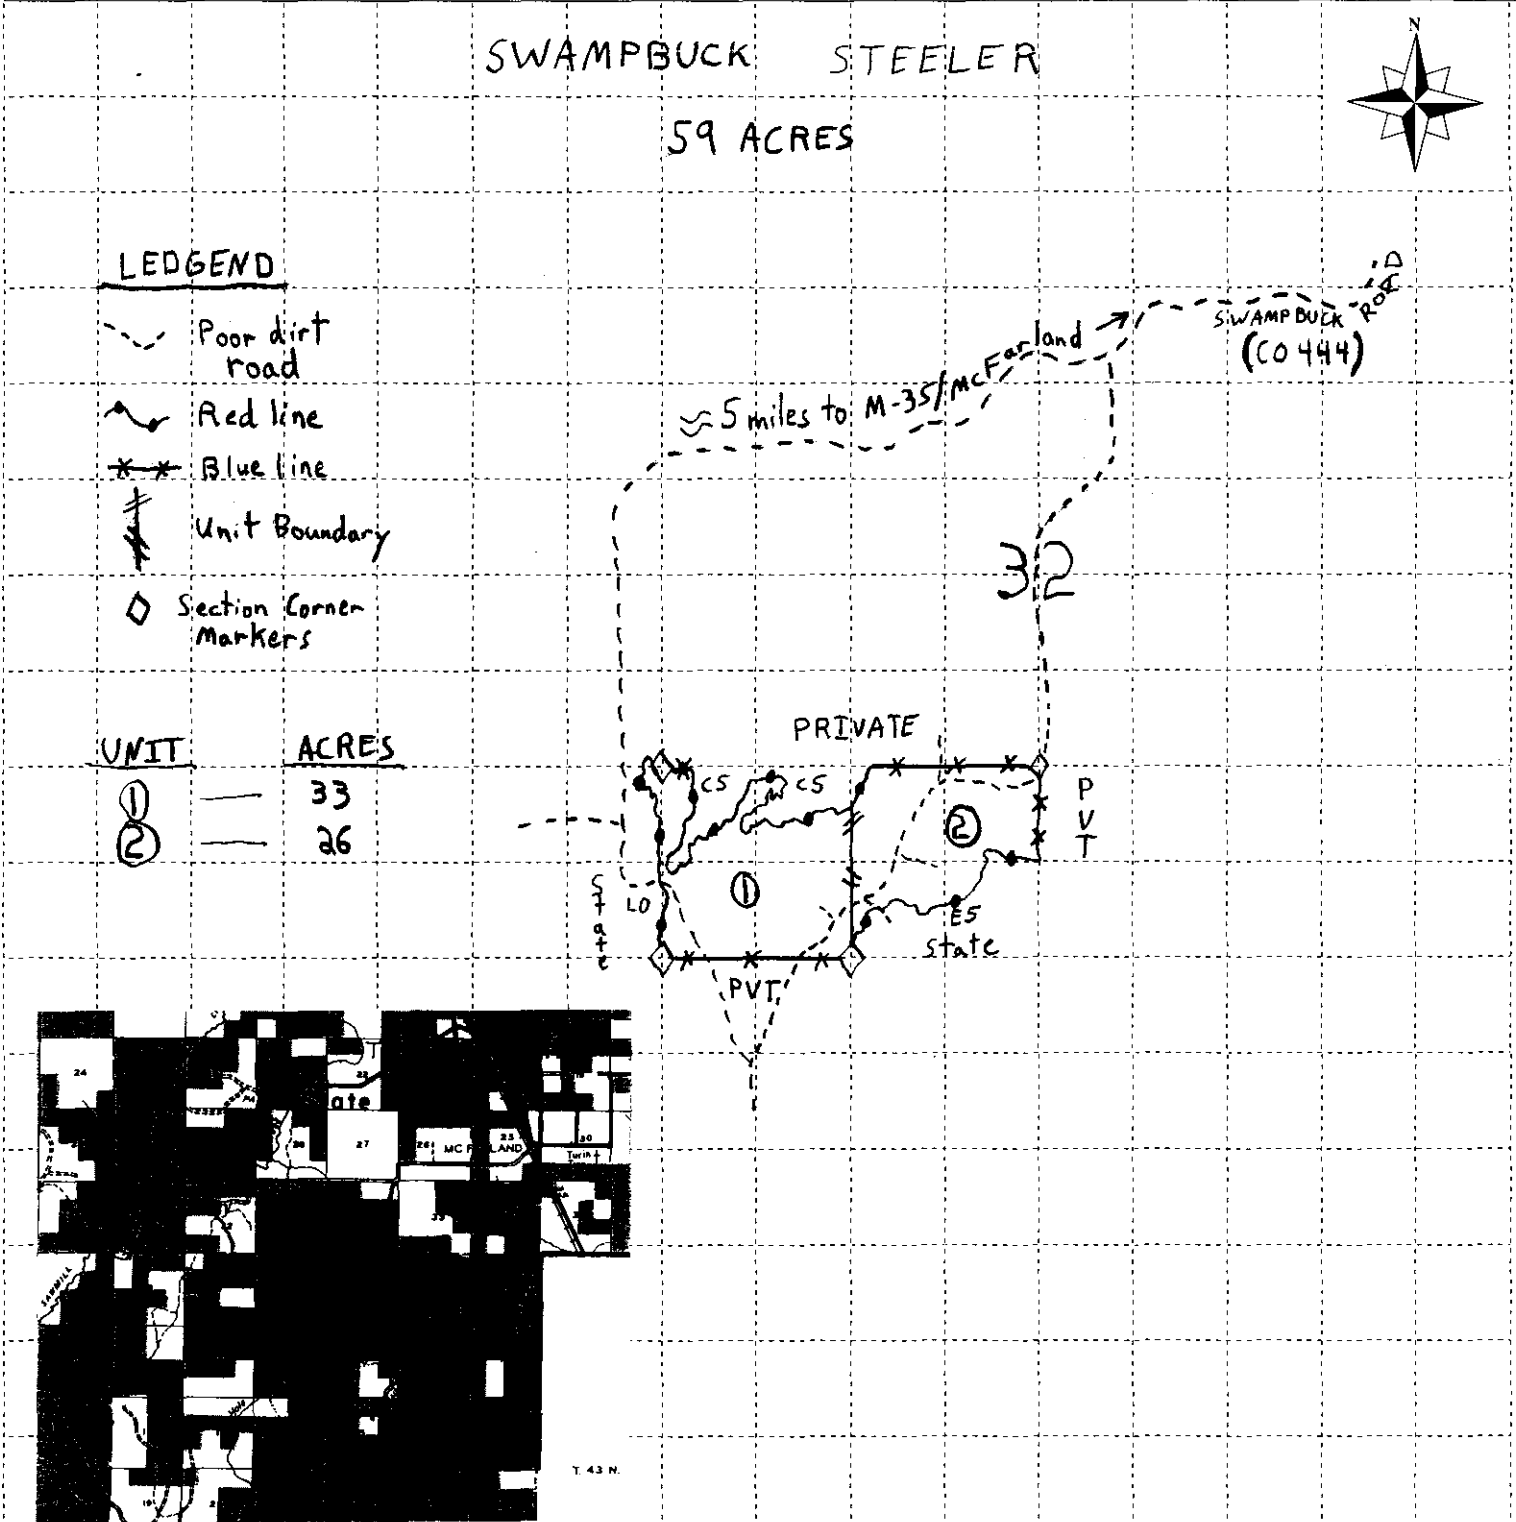 SWAMPBUCK STEELER
59 ACRES
N
LEDGEND
Poor dirt
road
Red line
Blue line
Unit Boundary
Section Corner
Markers
UNIT ACRES
1 — 33
2 — 26
≈ 5 miles to M-35/McFarland →
SWAMPBUCK ROAD
(CO 444)
32
PRIVATE
C5 C5
PVT
2
1
State
LO
E5
state
PVT
24
22
ate
27
26
MC F LAND
25
30
Turin
33
SAWMILL
19
T. 43 N.